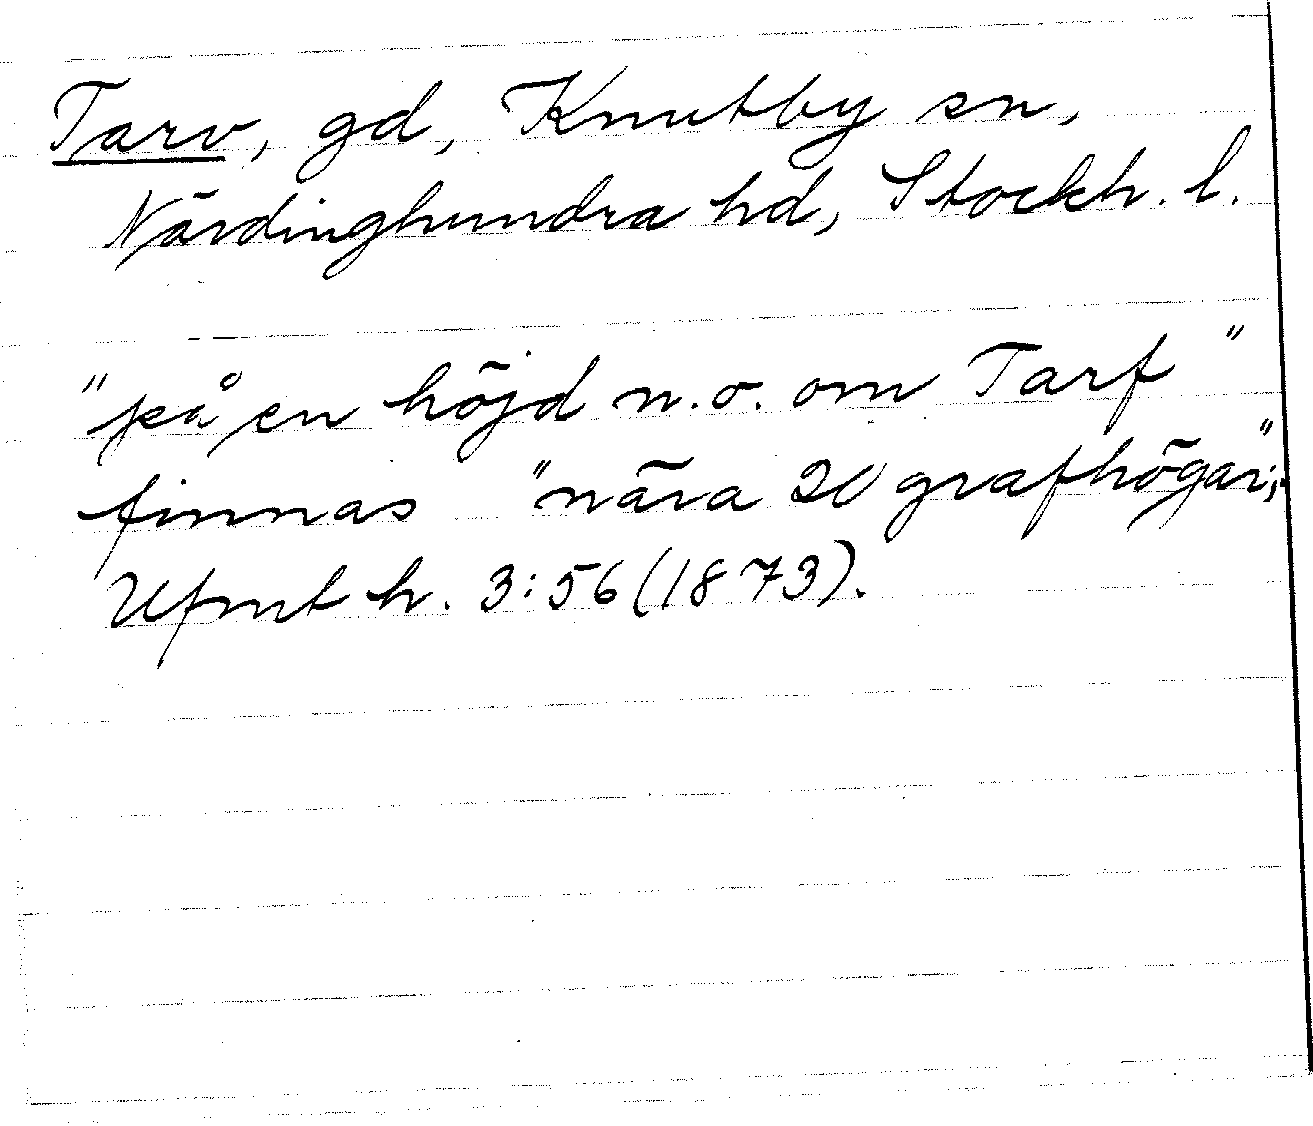 Tarv, gd, Knutby sn,
Närdinghundra hd, Stockh. l.
"på en höjd n.o. om Tarf"
finnas "nära 20 grafhögar";
Ufmt h. 3:56 (1873).